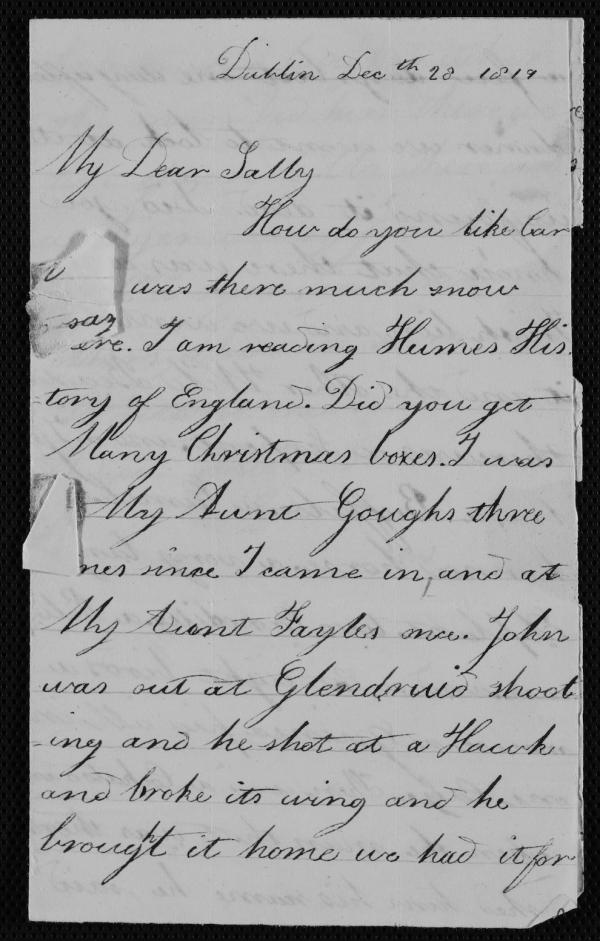 Dublin Decth 28 1819
My Dear Sally
How do you like Car
was there much snow
ere. I am reading Humes His
-tory of England. Did you get
Many Christmas boxes. I was
My Aunt Goughs three
mes since I came in, and at
My Aunt Fayles once. John
was out at Glendruid shoot
-ing and he shot at a Hawk
and broke its wing and he
brought it home we had it for